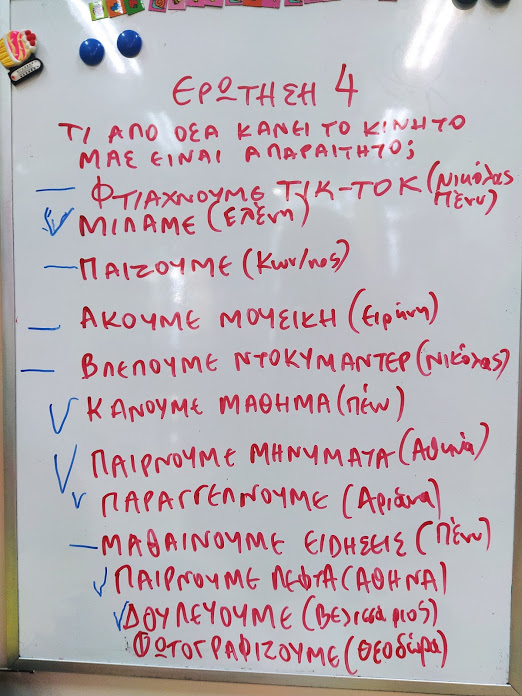 ΕΡΩΤΗΣΗ 4
ΤΙ ΑΠΟ ΟΣΑ ΚΑΝΕΙ ΤΟ ΚΙΝΗΤΟ
ΜΑΣ ΕΙΝΑΙ ΑΠΑΡΑΙΤΗΤΟ;
— ΦΤΙΑΧΝΟΥΜΕ ΤΙΚ-ΤΟΚ (Νικόλας
Πένυ)
✓ ΜΙΛΑΜΕ (Ελένη)
— ΠΑΙΖΟΥΜΕ (Κων/νος)
— ΑΚΟΥΜΕ ΜΟΥΣΙΚΗ (Ειρήνη)
— ΒΛΕΠΟΥΜΕ ΝΤΟΚΥΜΑΝΤΕΡ (Νικόλας)
✓ ΚΑΝΟΥΜΕ ΜΑΘΗΜΑ (Πένυ)
✓ ΠΑΙΡΝΟΥΜΕ ΜΗΝΥΜΑΤΑ (Αθηνά)
✓ ΠΑΡΑΓΓΕΛΝΟΥΜΕ (Αριάνα)
— ΜΑΘΑΙΝΟΥΜΕ ΕΙΔΗΣΕΙΣ (Πένυ)
✓ ΠΑΙΡΝΟΥΜΕ ΛΕΦΤΑ (ΑΘΗΝΑ)
✓ ΔΟΥΛΕΥΟΥΜΕ (Βελισσάριος)
ΦΩΤΟΓΡΑΦΙΖΟΥΜΕ (Θεοδώρα)